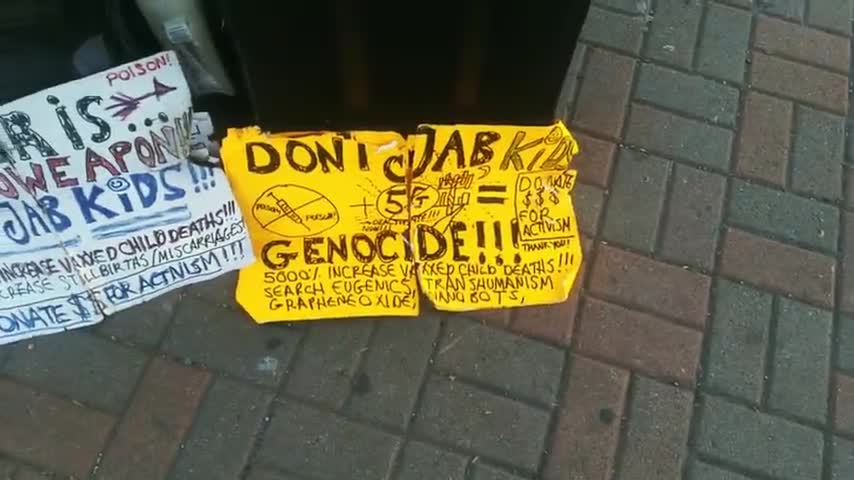 POISON!
RIS...
OWEAPON!!!
JAB KIDS!!!
INCREASE VAXXED CHILD DEATHS!!!
CREASE STILLBIRTHS/MISCARRIAGES
ONATE $$ FOR ACTIVISM!!!
DON'T JAB KIDS
POISON POISON!
+ 5G =
DONATE
$$$
FOR
ACTIVISM
THANK YOU!
GENOCIDE!!!
5000% INCREASE VAXXED CHILD DEATHS!!!
SEARCH EUGENICS, TRANSHUMANISM
GRAPHENE OXIDE, NANO BOTS,